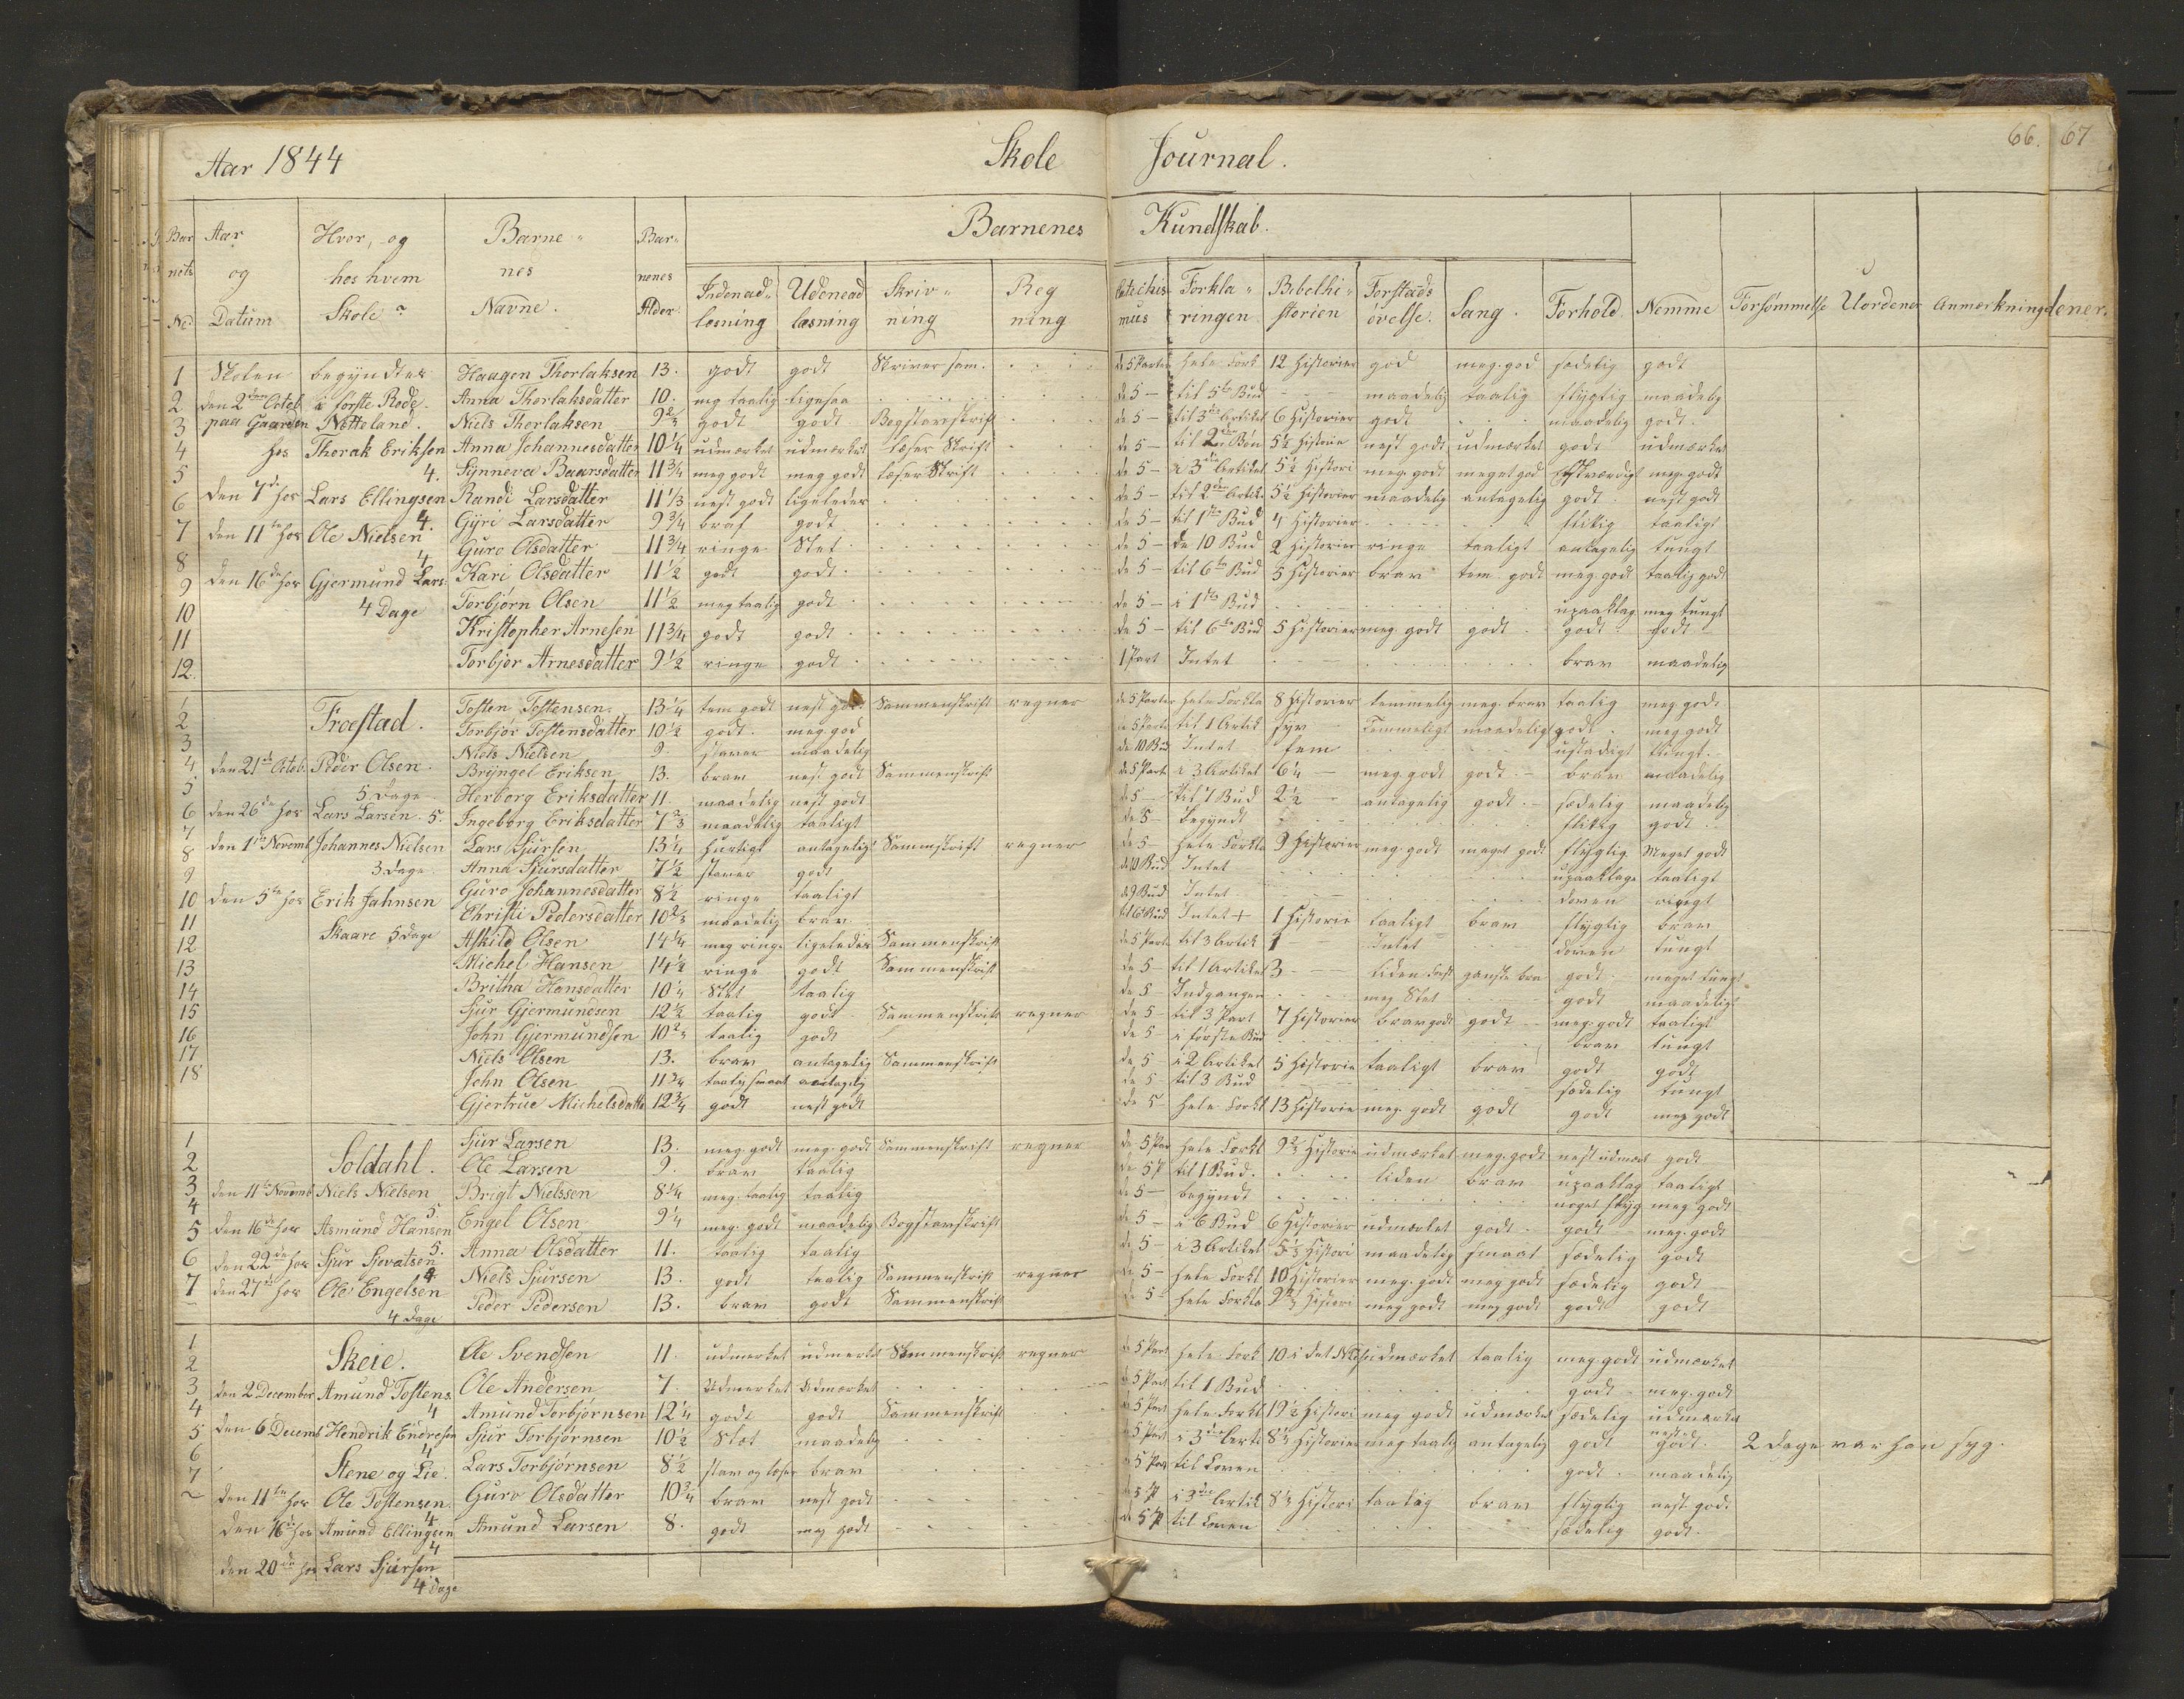 Aar 1844 Skole Journal. 66. 67
Barnenes Kundskab.
Bar nets No. Aar og Datum Hvor, og hos hvem Skole? Barne- nes Navne. Bar- nenes Alder. Indenad- læsning Udenead læsning Skriv- ning Reg ning Catechis- mus Forkla- ringen Bibelhi- storien Forstads øvelse. Sang. Forhold. Nemme Forsømmelse Uordener Anmærkningdener.
1 Skolen begyndtes Haagen Thorlaksen 13. godt godt Skriver sam. de 5 Parter hele Fork 12 Historier god meg. god sædelig godt
2 den 2den Octob i første Rode. Anna Thorlaksdatter 10. meg taalig ligesaa de 5 - til 5te Bud maadelig taalig flygtig maadelig
3 paa Gaarden Netteland. Niels Thorlaksen 9 2/3 godt godt Bogstavskrift de 5 - til 3die Artikel 6 Historier godt maadelig godt.
4 hos Thorak Eriksen Anna Johannesdatter 10 1/4 udmærket udmærket læser Skrift de 5 - til 2den Bøn 5 1/2 Historie nest godt udmærket godt udmærket
5 4. Synneva Baarsdatter 11 3/4 meg godt meg godt læser Skrift de 5 - i 3die Artikel 5 1/2 Histori meg. godt meget god meg. godt
6 den 7de hos Lars Ellingsen Randi Larsdatter 11 1/3 nest godt ligeledes de 5 - til 2den Artike 5 1/2 Historier maadelig antagelig godt. nest godt
7 4. Gyri Larsdatter 9 3/4 braf godt de 5 - til 1ste Bud 4 Historier flitig taaligt
8 den 11te hos Ole Nielsen Guro Olsdatter 11 3/4 ringe Slet de 5 - de 10 Bud 2 Historier ringe taaligt antagelig tungt
9 4 Kari Olsdatter 11 1/2 godt godt de 5 - til 6te Bud 5 Historier brav tem. godt meg. godt taalig godt
10 den 16de hos Gjermund Lars. Torbjørn Olsen 11 1/2 meg taalig godt de 5 - i 1ste Bud upaaklag meg tungt
11 4 Dage Kristopher Arnesen 11 3/4 godt godt de 5 - til 6te Bud 5 Historier meg. godt godt godt godt
12. Torbjør Arnesdatter 9 1/2 ringe godt 1 Part Intet brav maadelig
1 Træstad. Tosten Tostensen 13 1/4 tem godt nest god Sammenskrift regner de 5 Parter hele Forkla 8 Historier temmelig meg. brav taalig meg godt
2 Torbjør Tostensdatter 10 1/2 godt. meg. god de 5 Parte til 1 Artik syv Temmeligt maadeligt godt meg godt
3 Niels Nielsen 9. staver maadelig de 10 Bud Intet fem ustadigt tungt.
4 den 21de Octob. Peder Olsen. Bryngel Eriksen 13. brav nest godt Sammenskrift de 5 Part i 3 Artikel 6 1/4 meg. godt godt brav maadelig
5 5 Dage Herborg Eriksdatter 11 maadelig nest godt de 5 - til 7 Bud 2 1/2 antagelig godt. sædelig maadelig
6 den 26de hos Lars Larsen. 5. Ingeborg Eriksdatter 7 2/3 maadelig taaligt de 5 - begyndt flitig godt
7 den 1ste Novemb Johannes Nielsen Lars Sjursen 13 1/4 hurtigt antagelig Sammenskrift regner de 5 - hele Forkla 9 Historier meg. godt meget godt flygtig Meget godt
8 3 dage Anna Sjursdatter 7 1/2 staver godt de 10 Bud Intet upaaklage taaligt
9 Guro Johannesdatter 8 1/2 ringe taaligt de 9 Bud Intet doven ringt
10 den 5te hos Erik Jahnsen Christi Pedersdatter 10 2/3 maadelig brav til 6 Bud Intet + 1 Historie taaligt brav flygtig brav
11 Skaare 5 dage Askild Olsen 14 1/4 meg ringe ligeledes Sammenskrift de 5 Part til 3 Artik 1 Intet doven tungt
12 Michel Hansen 14 1/2 ringe godt Sammenskrift de 5 - til 1 Artikel 3 liden Fast ganske bra godt. meget tungt
13 Britha Hansdatter 10 1/4 Slet taalig de 5 Indgangen meg Slet godt maadeligt
14 Sjur Gjermundsen 12 1/2 taalig godt Sammenskrift regner de 5 - til 3 Part 7 Historier brav godt godt meg. godt taaligt
15 John Gjermundsen 10 2/3 taalig godt de 5 i første Bud brav tungt
16 Niels Olsen 13. brav antagelig Sammenskrift de 5 i 2 Artikel 5 Historie taaligt brav godt godt
17 John Olsen 11 3/4 taalig smaat antagelig de 5 til 3 Bud sædelig tungt
18 Gjertrue Michelsdatte 12 3/4 godt nest godt de 5 hele Forkl 13 Historie meg. godt godt godt meg godt
1 Sjur Larsen 13. meg. godt meg. godt Sammenskrift regner de 5 Par hele Forkl 9 2/3 Historie udmærket meg. godt nest udmært godt
2 Soldahl. Ole Larsen 9. brav taalig de 5 P til 1 Bud. liden brav upaaklag taaligt
3 den 11te Novemb Niels Nielsen Brigt Nielssen 8 1/4 meg. taalig taalig de 5 - begyndt noget flyg meg godt
4 5. Engel Olsen 9 1/4 meg. godt maadelig Bogstavskrift de 5 - i 6 Bud 6 Historier udmærket godt godt meg. godt
5 den 16de hos Asmund Hansen 5. Anna Olsdatter 11. taalig taalig de 5 - i 3 Artikel 5 1/3 Histori maadelig smaat sædelig godt
6 den 22de hos Sjur Sjovatsen 4 Niels Sjursen 13. godt taalig Sammenskrift regner de 5 - hele Forkl 10 Historier meg. godt meg godt sædelig godt
7 den 27de hos Ole Engelsen Peder Pedersen 13. brav godt Sammenskrift de 5 - hele Forkla 9 2/3 Histori meg godt meg godt godt godt
4 Dage
1 Skeie. Ole Svendsen 11 udmerket udmerket Sammenskrift regner de 5 Part hele Fork 10 i det N udmærket taalig meg. godt udmærket
2 Ole Andersen 7. Udmerket Udmærket de 5 Part til 1 Bud godt meg. godt
3 den 2 December Amund Tostens. Amund Torbjørnsen 12 1/4 godt godt Sammenskrift de 5 Part hele Forkl 19 1/2 Histori meg godt udmærket sædelig udmærket
4 4 Sjur Torbjørnsen 10 1/2 Slet maadelig de 5 Part i 3die Arti 8 1/2 Historier meg taalig antagelig godt nest godt. 2 dage var han syg.
5 den 6 Decemb Hendrik Endresen 4 Lars Torbjørnsen 8 1/2 stav og læser brav de 5 Part til Loven godt. maadelig
6 Stene og Lie. Guro Olsdatter 10 3/4 brav nest godt de 5 P i 3die Artik 8 1/3 Histori taalig brav flygtig nest godt
7 den 11te hos Ole Tostensen. 4 Amund Larsen 8. godt meg godt de 5 P til Loven sædelig godt.
den 16de hos Amund Ellingsen 4
den 20de hos Lars Sjursen
4 Dage